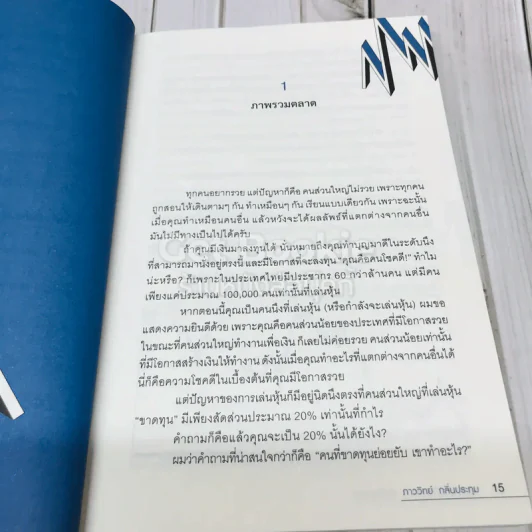 1
ภาพรวมตลาด
ทุกคนอยากรวย แต่ปัญหาก็คือ คนส่วนใหญ่ไม่รวย เพราะทุกคน
ถูกสอนให้เดินตามๆ กัน ทำเหมือนๆ กัน เรียนแบบเดียวกัน เพราะฉะนั้น
เมื่อคุณทำเหมือนคนอื่น แล้วหวังจะได้ผลลัพธ์ที่แตกต่างจากคนอื่น
มันไม่มีทางเป็นไปได้ครับ
ถ้าคุณมีเงินมาลงทุนได้ นั่นหมายถึงคุณทำบุญมาดีในระดับนึง
ที่สามารถมานั่งอยู่ตรงนี้ และมีโอกาสที่จะลงทุน "คุณคือคนโชคดี!" ทำไม
น่ะหรือ? ก็เพราะในประเทศไทยมีประชากร 60 กว่าล้านคน แต่มีคน
เพียงแค่ประมาณ 100,000 คนเท่านั้นที่เล่นหุ้น
หากตอนนี้คุณเป็นคนนึงที่เล่นหุ้น (หรือกำลังจะเล่นหุ้น) ผมขอ
แสดงความยินดีด้วย เพราะคุณคือคนส่วนน้อยของประเทศที่มีโอกาสรวย
ในขณะที่คนส่วนใหญ่ทำงานเพื่อเงิน ก็เลยไม่ค่อยรวย คนส่วนน้อยเท่านั้น
ที่มีโอกาสสร้างเงินให้ทำงาน ดังนั้นเมื่อคุณทำอะไรที่แตกต่างจากคนอื่นได้
นี่ก็คือความโชคดีในเบื้องต้นที่คุณมีโอกาสรวย
แต่ปัญหาของการเล่นหุ้นก็มีอยู่นิดนึงตรงที่คนส่วนใหญ่ที่เล่นหุ้น
"ขาดทุน" มีเพียงสัดส่วนประมาณ 20% เท่านั้นที่กำไร
คำถามก็คือแล้วคุณจะเป็น 20% นั้นได้ยังไง?
ผมว่าคำถามที่น่าสนใจกว่าก็คือ "คนที่ขาดทุนย่อยยับ เขาทำอะไร?"
ภาววิทย์ กลิ่นประทุม 15